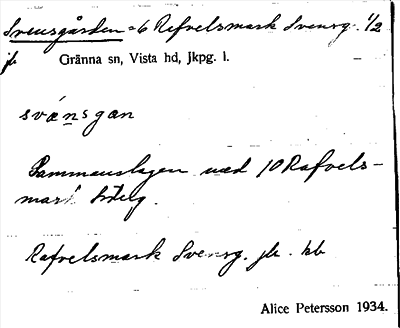 Svensgården = 6 Rafvelsmark Svensg. 1/2
jb Gränna sn, Vista hd, Jkpg. l.
svánsgan
Sammanslagen med 10 Rafvels-
mark
Rafvelsmark Svensg. jb. kb
Alice Petersson 1934.